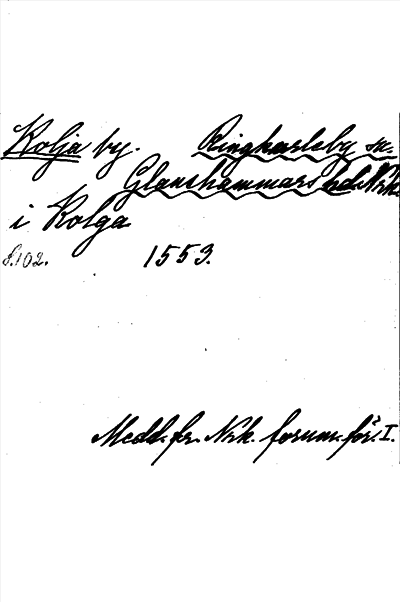 Kolja by. Ringkarleby sn.
Glanshammars hd. Nrk.
i Kolga
s. 102. 1553.
Medd. fr. Nrk. fornm. för. I.